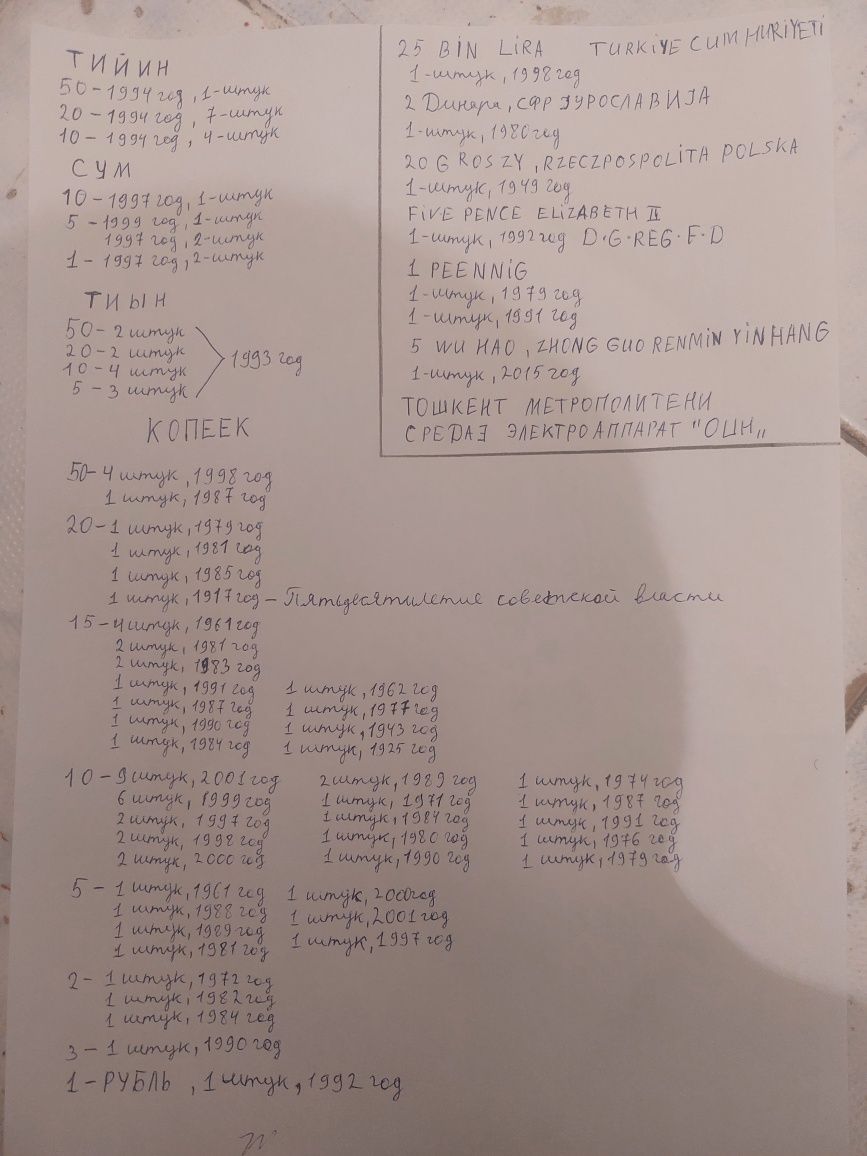 ТИЙИН
50-1994 год, 1-штук
20-1994 год, 7-штук
10-1994 год, 4-штук
СУМ
10-1997 год, 1-штук
5-1999 год, 1-штук
1997 год, 2-штук
1-1997 год, 2-штук
ТИЫН
50-2 штук
20-2 штук
10-4 штук
5-3 штук
1993 год
25 BİN LİRA TURKİYE CUMHURİYETİ
1-штук, 1998 год
2 Динара, СФР ЈУРОСЛАВИЈА
1-штук, 1980 год
20 GROSZY, RZECZPOSPOLITA POLSKA
1-штук, 1949 год
FIVE PENCE ELIZABETH II
1-штук, 1992 год D·G·REG·F·D
1 PEENNIG
1-штук, 1979 год
1-штук, 1991 год
5 WU HAO, ZHONG GUO RENMIN YINHANG
1-штук, 2015 год
ТОШКЕНТ МЕТРОПОЛИТЕНИ
СРЕДАЗ ЭЛЕКТРОАППАРАТ "ОЦН„
КОПЕЕК
50-4 штук, 1998 год
1 штук, 1987 год
20-1 штук, 1979 год
1 штук, 1981 год
1 штук, 1985 год
1 штук, 1917 год - Пятьдесятилетие советской власти
15-4 штук, 1961 год
2 штук, 1981 год
2 штук, 1983 год
1 штук, 1991 год 1 штук, 1962 год
1 штук, 1987 год 1 штук, 1977 год
1 штук, 1990 год 1 штук, 1943 год
1 штук, 1984 год 1 штук, 1925 год
10-9 штук, 2001 год 2 штук, 1989 год 1 штук, 1974 год
6 штук, 1999 год 1 штук, 1971 год 1 штук, 1987 год
2 штук, 1997 год 1 штук, 1984 год 1 штук, 1991 год
2 штук, 1998 год 1 штук, 1980 год 1 штук, 1976 год
2 штук, 2000 год 1 штук, 1990 год 1 штук, 1979 год
5-1 штук, 1961 год 1 штук, 2000 год
1 штук, 1988 год 1 штук, 2001 год
1 штук, 1989 год 1 штук, 1997 год
1 штук, 1981 год
2-1 штук, 1972 год
1 штук, 1982 год
1 штук, 1984 год
3-1 штук, 1990 год
1-РУБЛЬ, 1 штук, 1992 год